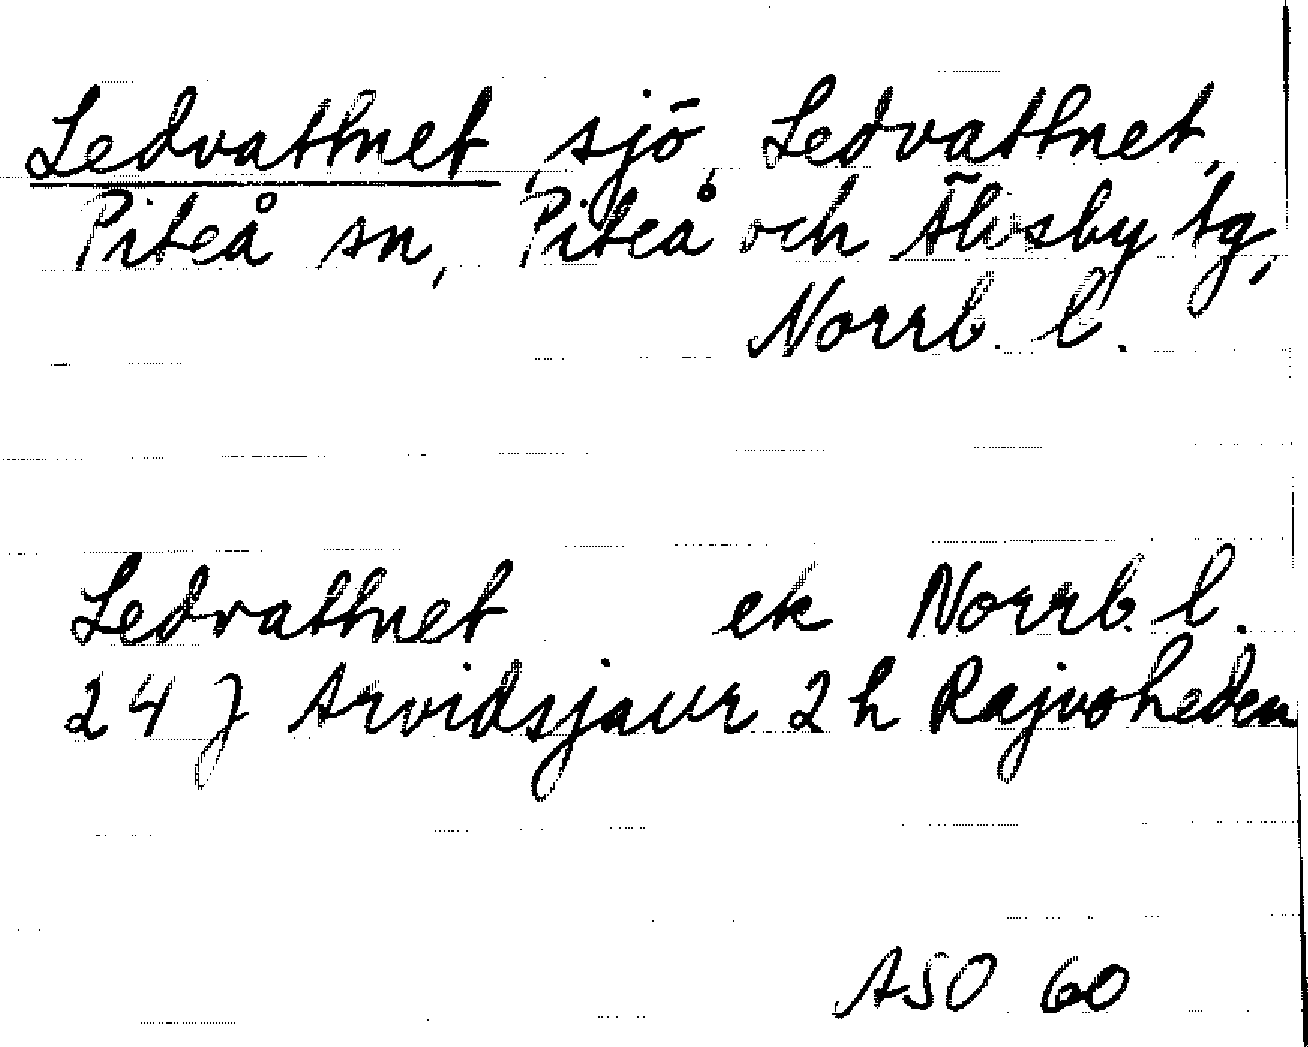 Ledvattnet, sjö, Ledvattnet,
Piteå sn, Piteå och Älvsby tg,
Norrb. l.
Ledvattnet ek Norrb. l.
24 J Arvidsjaur 2 h Rajvoheden
ASO 60